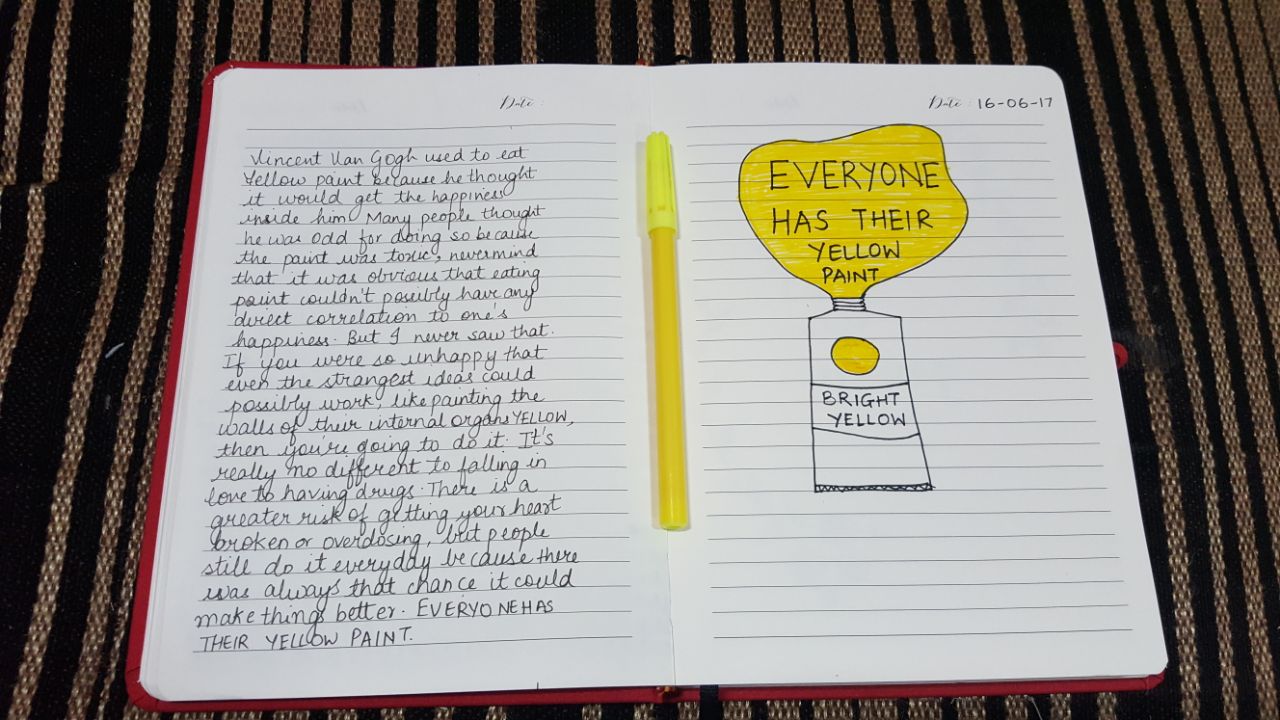 Date :
Vincent Van Gogh used to eat
Yellow paint because he thought
it would get the happiness
inside him. Many people thought
he was odd for doing so because
the paint was toxic, nevermind
that it was obvious that eating
paint couldn't possibly have any
direct correlation to one's
happiness. But I never saw that.
If you were so unhappy that
even the strangest ideas could
possibly work, like painting the
walls of their internal organs YELLOW,
then you're going to do it. It's
really no different to falling in
love to having drugs. There is a
greater risk of getting your heart
broken or overdosing, but people
still do it everyday because there
was always that chance it could
make things better. EVERYONE HAS
THEIR YELLOW PAINT.
Date : 16-06-17
EVERYONE
HAS THEIR
YELLOW
PAINT
BRIGHT
YELLOW